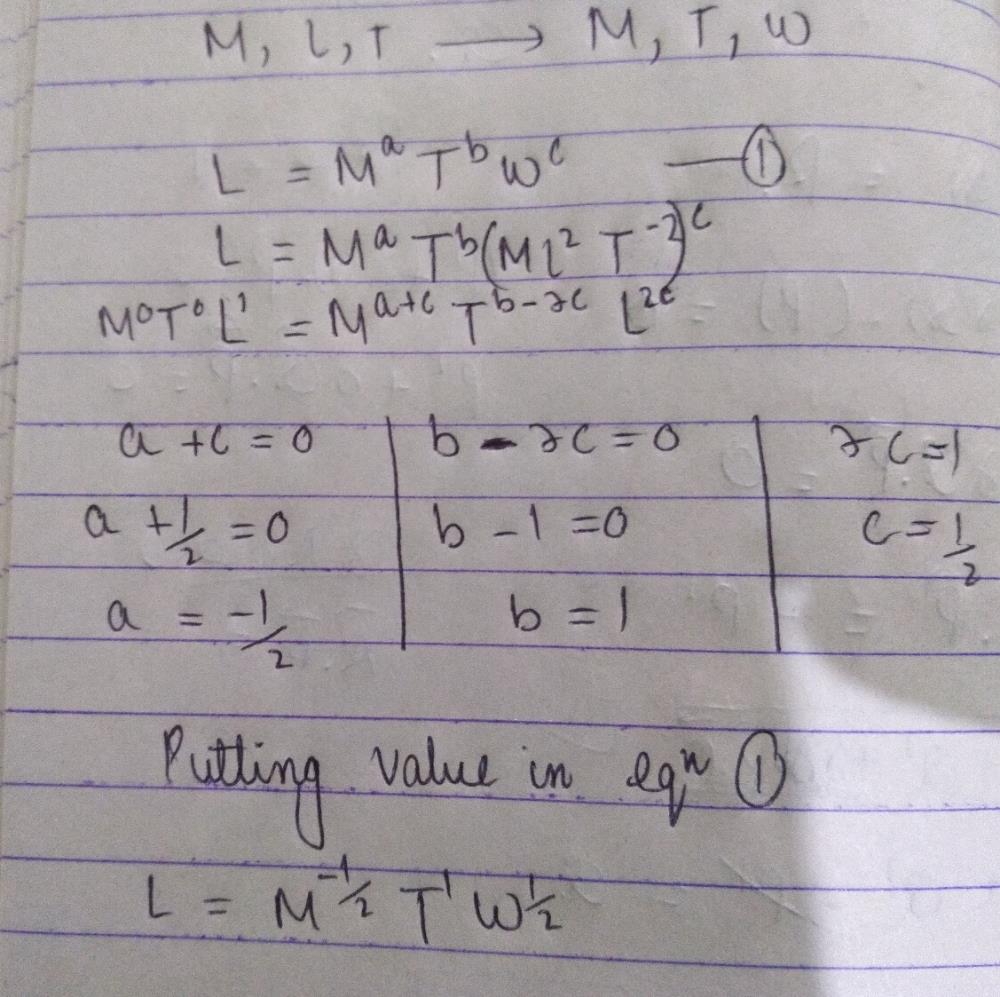 M, L, T → M, T, W
L = Mᵃ Tᵇ Wᶜ —①
L = Mᵃ Tᵇ (ML² T⁻²)ᶜ
M⁰T⁰L¹ = Mᵃ⁺ᶜ Tᵇ⁻²ᶜ L²ᶜ
a + c = 0 | b - 2c = 0 | 2c = 1
a + 1/2 = 0 | b - 1 = 0 | c = 1/2
a = -1/2 | b = 1
Putting value in eqⁿ ①
L = M^-1/2 T¹ W^1/2